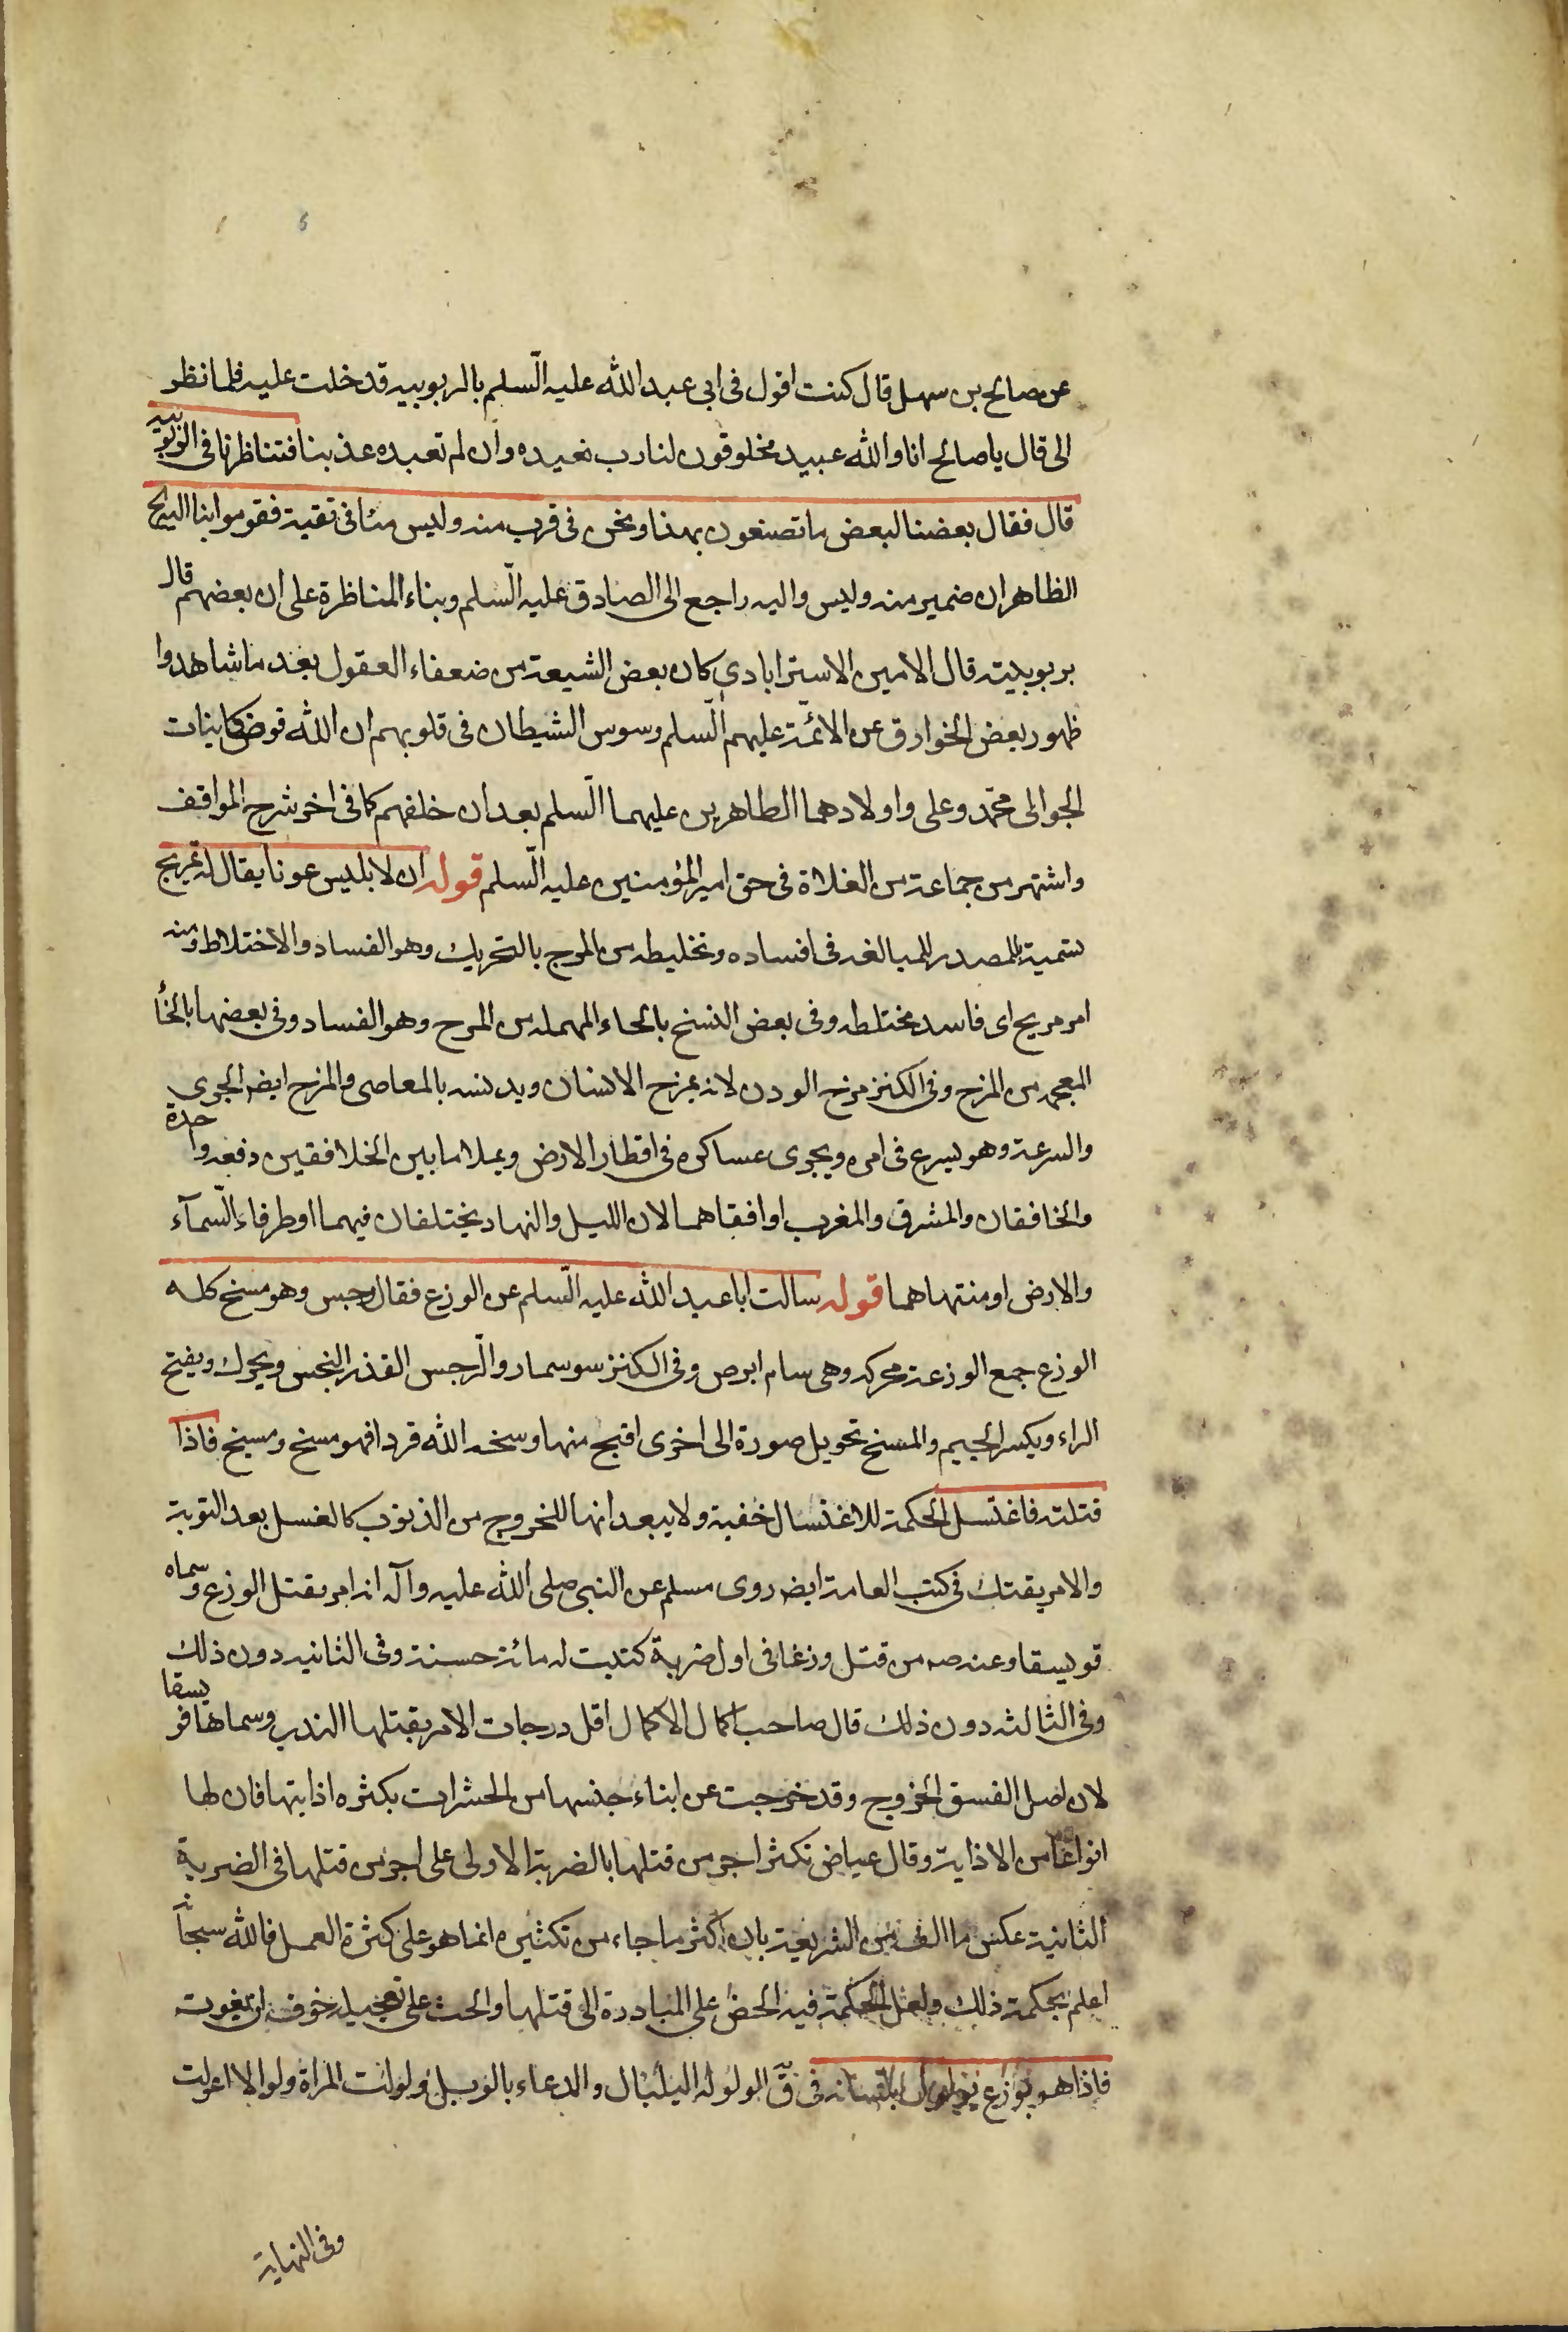 عن صالح بن سهل قال كنت اقول فى ابى عبد الله عليه السلم بالربوبيه قدخلت عليه فلما نظر
الى قال يا صالح انا والله عبيد مخلوقون لنا رب نعبده وان لم تعبده عذبنا فتناظرنا فى الربوبيه
قال فقال بعضنا لبعض ما تصنعون بهذا ونحن فى قرب منه وليس منا فى تقية فقوموا بنا اليه الخ
الظاهر ان ضمير منه وليس واليه راجع الى الصادق عليه السلم وبناء المناظرة على ان بعضهم قال
بربوبيته قال الامين الاسترابادي كان بعض الشيعة من ضعفاء العقول بعد ما شاهدوا
ظهور بعض الخوارق عن الائمة عليهم السلم وسوس الشيطان فى قلوبهم ان الله فوض كاينات
الجو الى محمد وعلى واولادهما الطاهرين عليهما السلم بعد ان خلفهم كما فى اخر شرح المواقف
واشتهر من جماعة من الغلاة فى حق امير المؤمنين عليه السلم قوله ان لابليس عونا يقال له تمريج
تسمية بالمصدر للمبالغه فى افساده وتخليطه من المرج بالتحريك وهو الفساد والاختلاط ومنه
امر مريج اى فاسد مختلطه وفى بعض النسخ بالحاء المهمله من المرح وهو الفساد وفى بعضها بالخا
المعجمه من المزح وفى الكنز مزح الودن لانه يمزح الانسان ويدنسه بالمعاصى والمزح ايضه الجرى
والسرعة وهو يسرع فى امره ويجرى عساكره فى اقطار الارض ويملا ما بين الخلافقين دفعه واحدة
والخافقان والمشرق والمغرب او افقاهما لان الليل والنهار يختلفان فيهما او طرفاء السمآء
والارض او منتهاهما قوله سالت ابا عبد الله عليه السلم عن الوزع فقال رجس وهو مسخ كله
الوزع جمع الوزعة محركه وهى سام ابرص وفى الكنز سوسمار والرجس القذر النجس ويحرك ويفتح
الراء ويكسر الجيم والمسخ تحويل صورة الى اخرى اقبح منها وسخه الله قردا فهو مسخ ومسيخ فاذا
قتلته فاغتسل الحكمة للاغتسال خفية ولا يبعد انها للخروج من الذنوب كالغسل بعد التوبة
والامر بقتله فى كتب العامة ايضه روى مسلم عن النبى صلى الله عليه وآله انه امر بقتل الوزع وسماه
فويسقا وعنه صه من قتل وزغا فى اول ضربة كتبت له مائة حسنة وفى الثانيه دون ذلك
وفى الثالثه دون ذلك قال صاحب اكمال الاكمال اقل درجات الامر بقتلها الندب وسماها فويسقا
لان اصل الفسق الخروج وقد خرجت عن ابناء جنسها من الحشرات بكثره اذايتها فان لها
انواعا من الاذاية وقال عياض تكثر اجر من قتلها بالضربة الاولى على اجر من قتلها فى الضربة
الثانية عكس ما الف من الشريعة بان اكثر ما جاء من تكثيره انما هو على كثرة العمل فالله سبحانه
اعلم بحكمة ذلك ولعل الحكمة فيه الحض على المبادرة الى قتلها والحث على تعجيله خوف ان يفوت
فاذا هو بوزع يولول بلسانه فى ق الولوله البلبال والدعاء بالويل ولولت المراة ولوالا اعولت
وفى النهاية